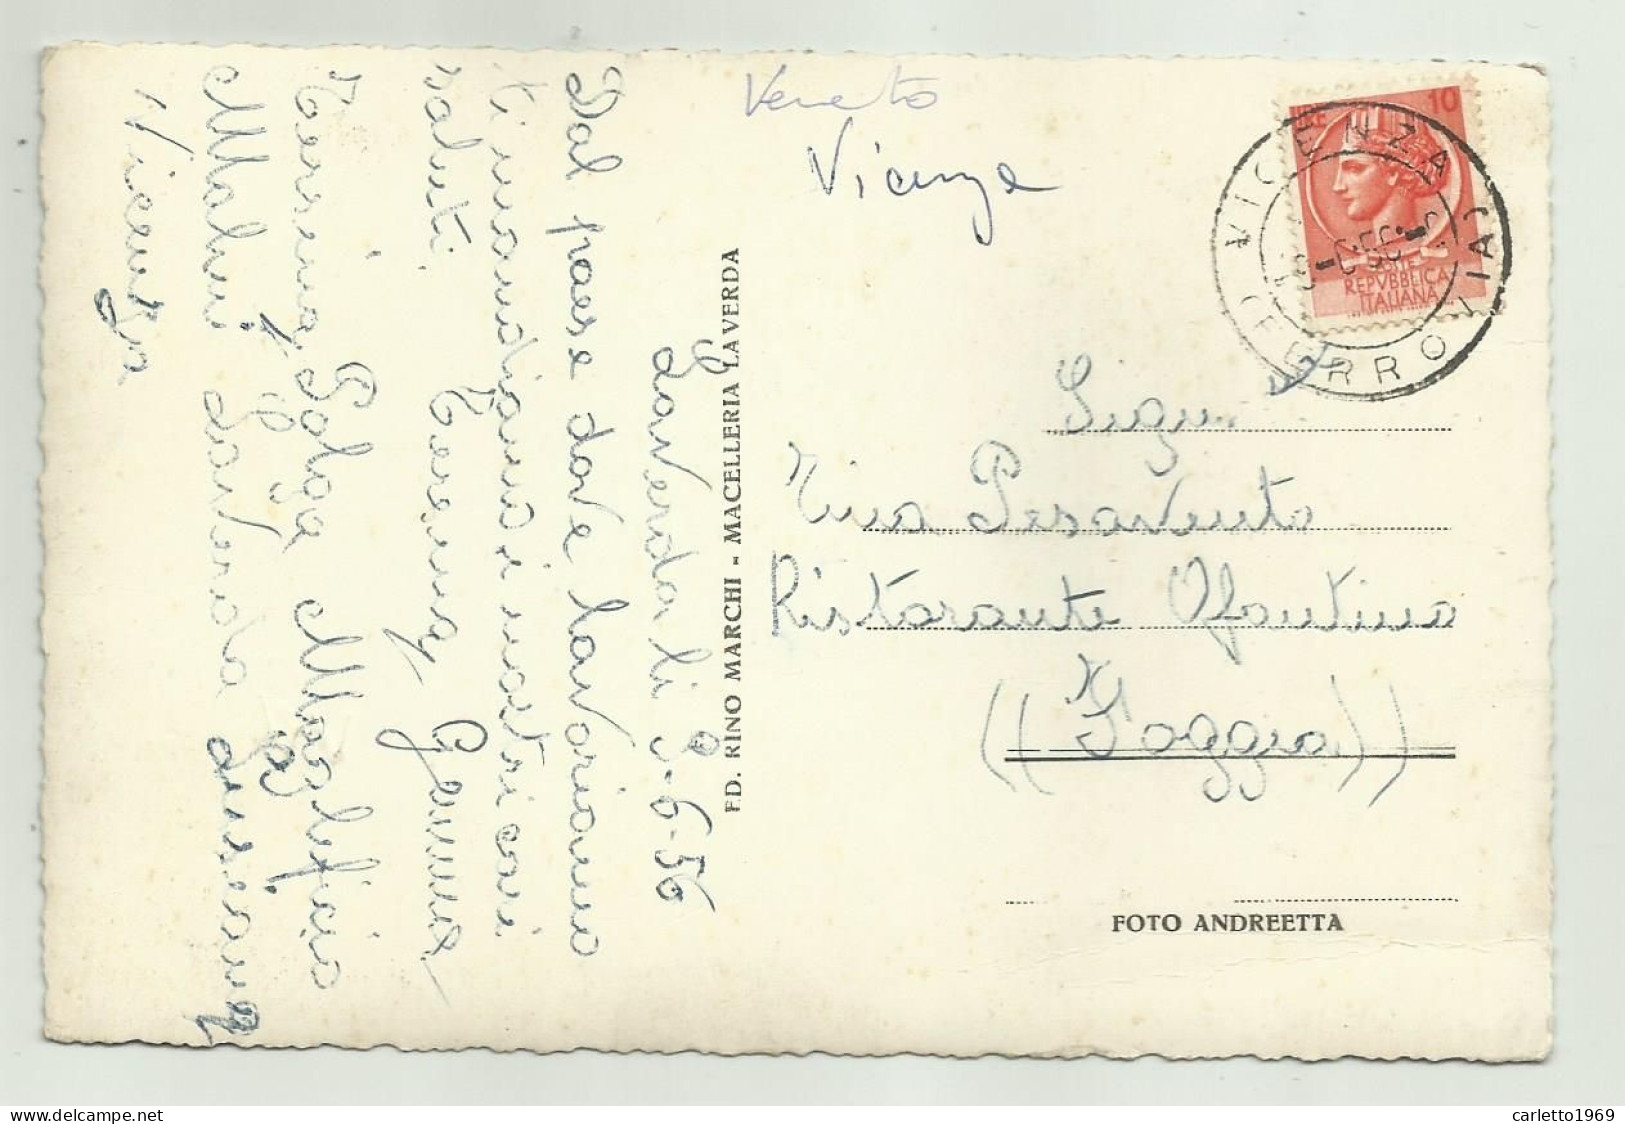 Veneto
Vicenza
10
LIRE
POSTE
REPVBBLICA
ITALIANA
VICENZA
(FERROVIA)
Laverda li 9-6-56
Dal paese dove lavoriamo
ti mandiamo i nostri cari
saluti. Gemma
Maglificio
Malui Laverda
Vicenza
ED. RINO MARCHI - MACELLERIA LAVERDA
Sign.
Tina Pesavento
Ristorante Ofantina
((Foggia))
FOTO ANDREETTA
carletto1969
https://www.delcampe.net